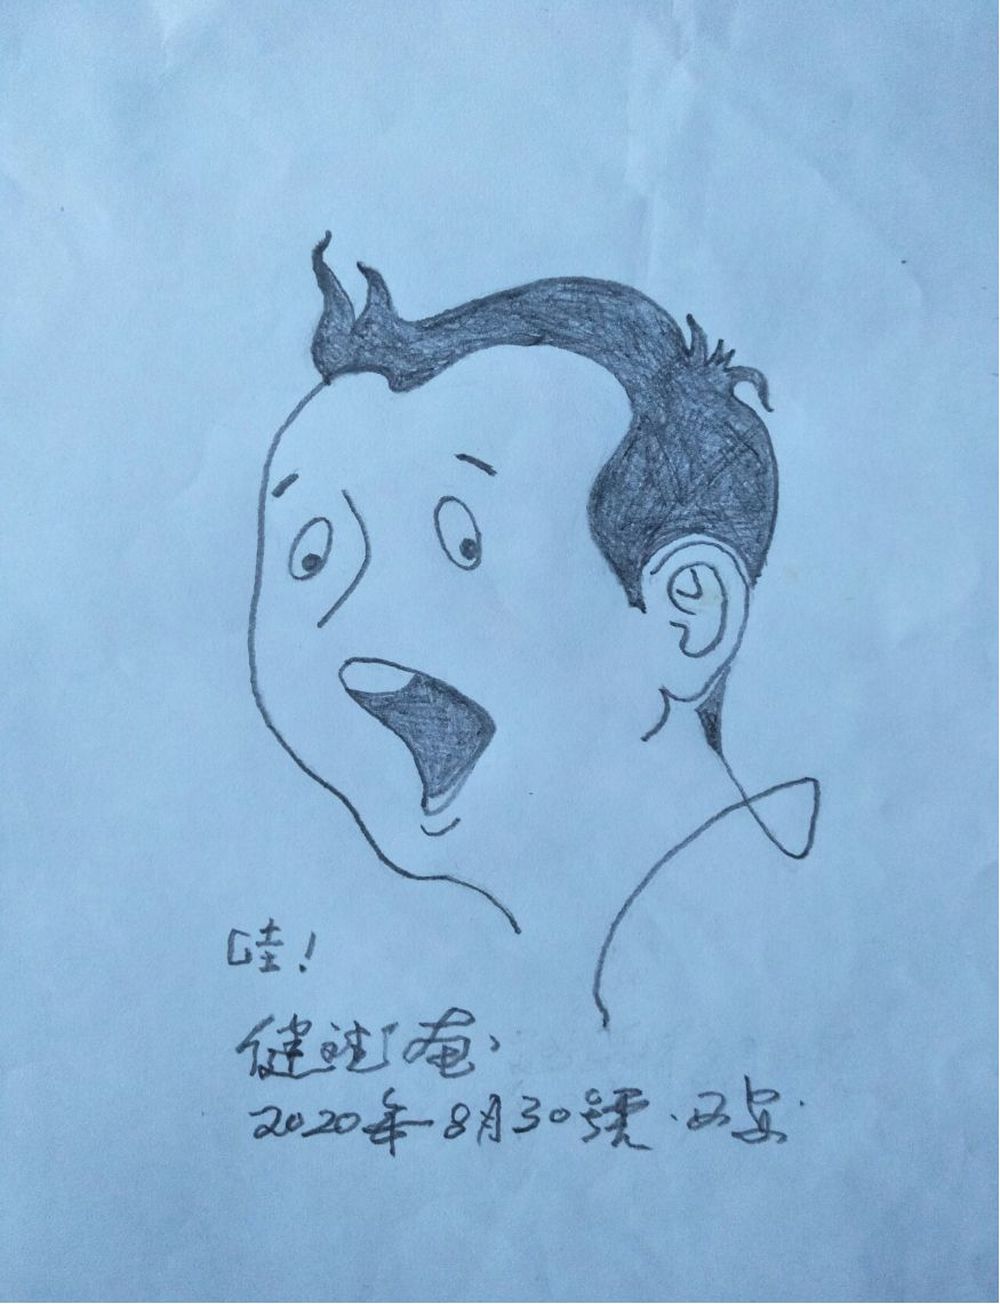 哇!
2020年8月30號.西安.